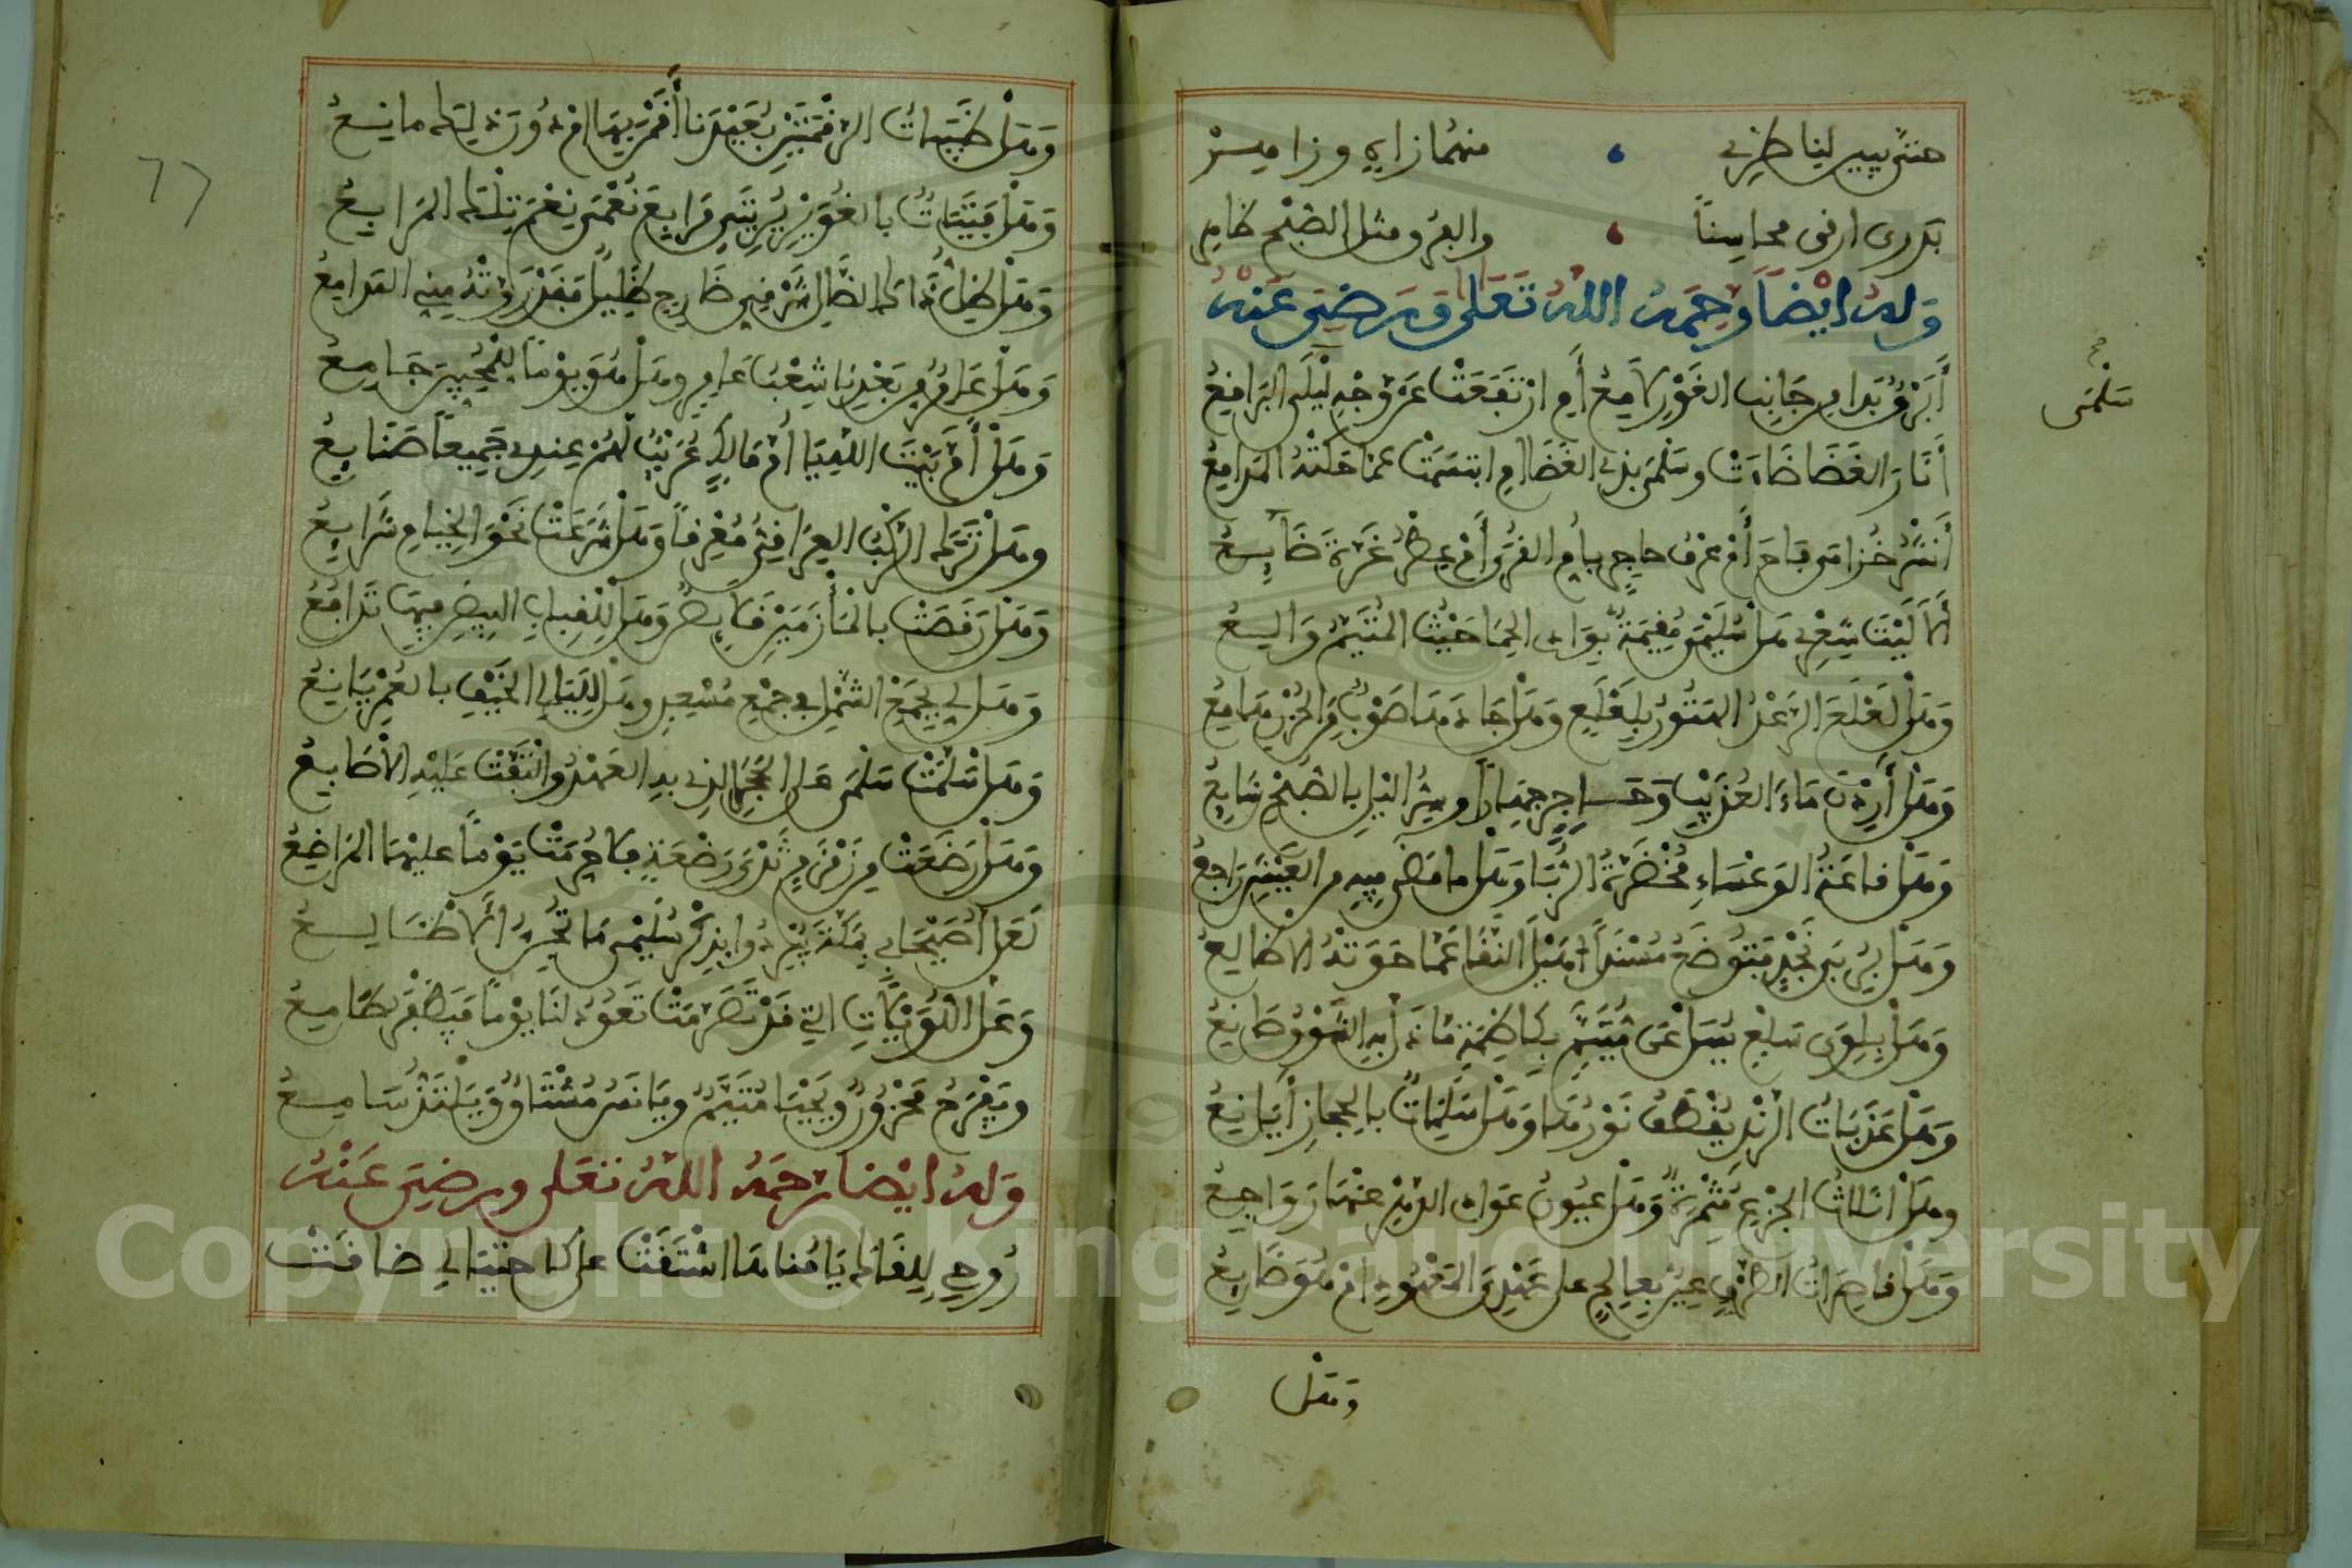 منهما زاي وزاميم
بدري ارق محاسنا والبعد ومثل الصبح
وله ايضا رحمه الله تعلى ورضي عنه
أبرق بدا من جانب الغور لامع أم ارتفعت عن وجه ليلى البراقع
أنار الغضا ضاءت وسلمى بذي الغضا ام ابتسمت عما حكته المدامع
أنشر خزامى فاح أم عرف حاجر بأم القرى أم عطر عزة ضايع
ألا ليت شعري هل سليمى مقيمة بواد الحما حيث المتيم والع
وهل لعلع الرعد الهتون بلعلع وهل جادها صوب من المزن هامع
وهل أردن ماء العذيب وحاجر جهارا وسر اليل بالصبح شايع
وهل قاعة الوعساء مخضرة الربا وهل ما مضى فيه من العيش راجع
وهل بربى نجد فتوضح مسند أهيل النقا عما حوته الاضالع
وهل بلوى سلع يسل عن متيم بكاظمة ماذا به الشوق صانع
وهل عذبات الرند يقطف نورها وهل سلمات بالحجاز أيانع
وهل اثلات الجزع مثمرة وهل عيون عواد الدهر عنها زواجع
وهل قاصرات الطرف عين بعالج على عهدي المعهود ام هو ضايع
وهل
سلمى
صح
٦٦
وهل ظبيات الرقمتين بعيدنا أقمن بها ام دون ذلك مانع
وهل فتيات بالغوير يريني مرابع نعمى نعم تلك المرابع
وهل ظل ذاك الضال شرقي ضارج ظليل فقد روته مني المدامع
وهل عامر من بعدنا شعب عامر وهل هو يوما للمحبين جامع
وهل أم بيت الله يا ام مالك عريب لهم عندي جميعا صنايع
وهل نزل الركب العراقي معرفا وهل شرعت نحو الخيام شرايع
وهل رقصت بالمأزمين قلايص وهل للقباب البيض فيها تدافع
وهل لي بجمع الشمل في جمع مسعد وهل لليالي الخيف بالعمر بايع
وهل سلمت سلمى على الحجر الذي به العهد والتفت عليه الاصابع
وهل رضعت من ثدي زمزم رضعة فلا حرمت يوما عليها المراضع
لعل أصيحابي بمكة يبردوا بذكر سليمى ما تجن الأضالع
وعل اللويلات التي قد تصرمت تعود لنا يوما فيظفر طامع
ويفرح محزون ويحيا متيم ويانس مشتاق ويلتذ سامع
وله ايضا رحمه الله تعلى ورضي عنه
روحي للقاك يا مناها اشتقت على كل احتيالي ضاقت